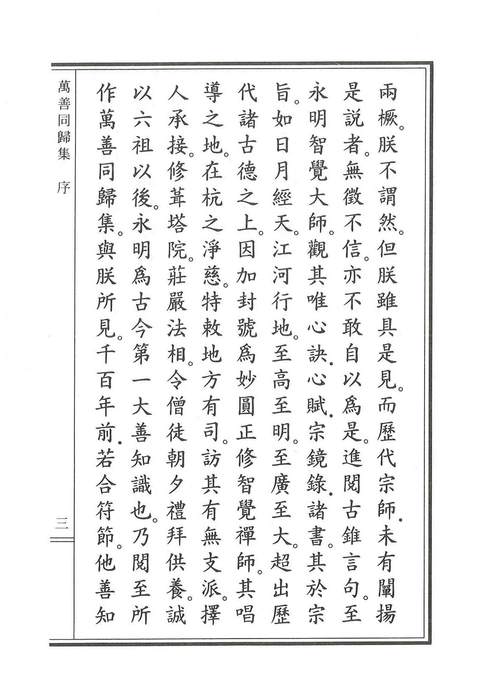 兩橛。朕不謂然。但朕雖具是見。而歷代宗師。未有闡揚
是說者。無徵不信。亦不敢自以為是。進閱古錐言句。至
永明智覺大師。觀其唯心訣。心賦。宗鏡錄。諸書。其於宗
旨。如日月經天。江河行地。至高至明。至廣至大。超出歷
代諸古德之上。因加封號為妙圓正修智覺禪師。其唱
導之地。在杭之淨慈。特敕地方有司。訪其有無支派。擇
人承接。修葺塔院。莊嚴法相。令僧徒朝夕禮拜供養。誠
以六祖以後。永明為古今第一大善知識也。乃閱至所
作萬善同歸集。與朕所見。千百年前。若合符節。他善知
萬善同歸集 序
三